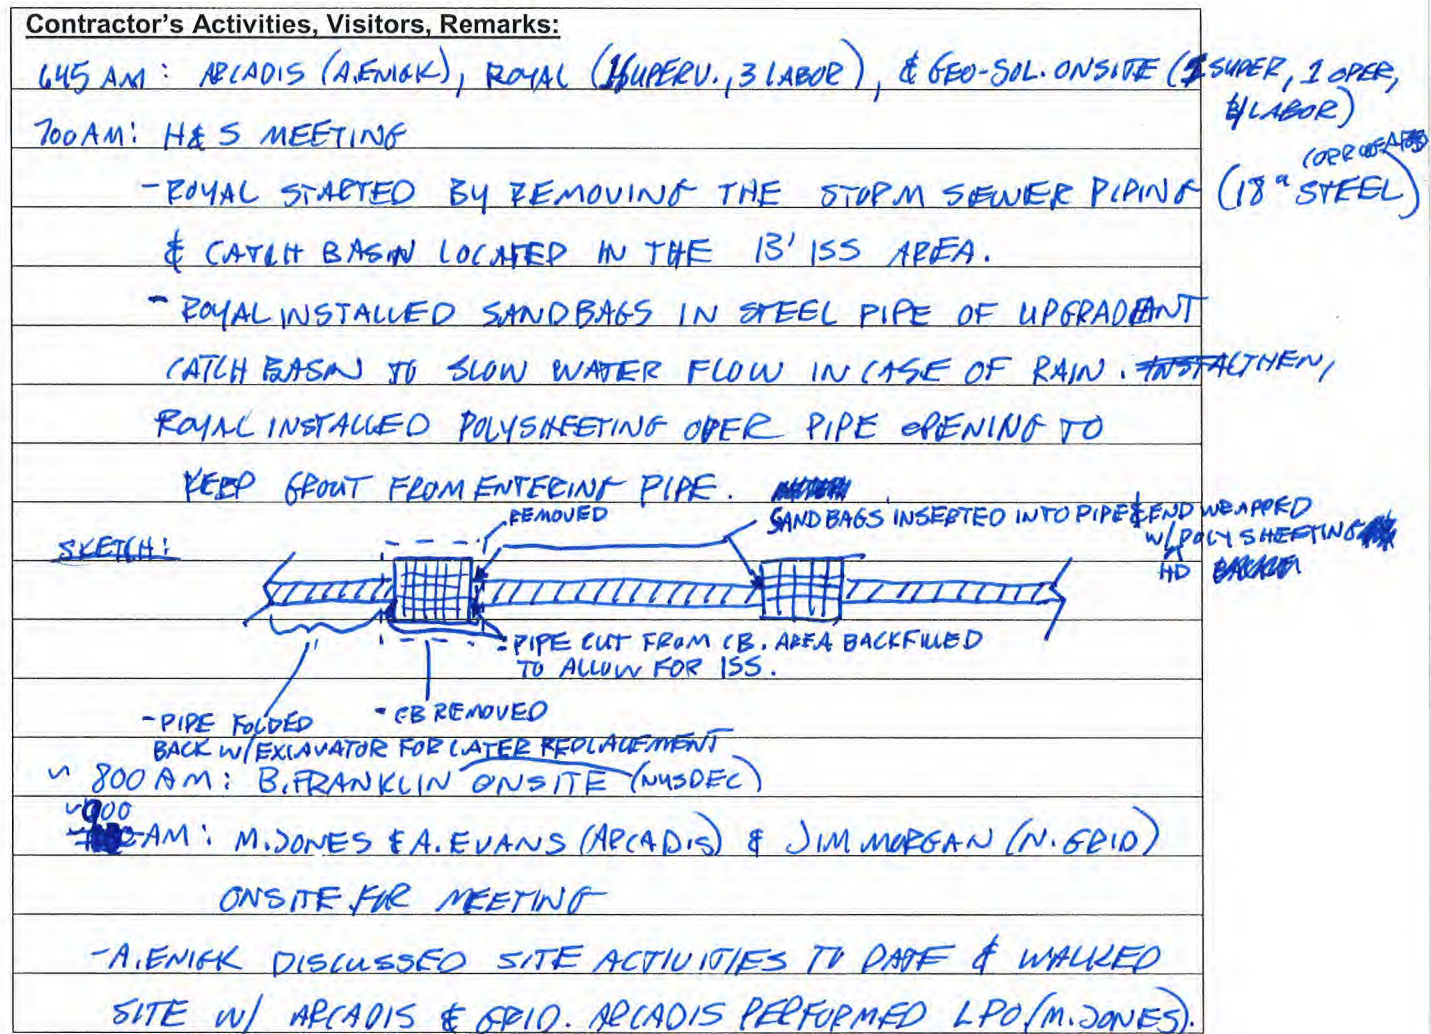 Contractor's Activities, Visitors, Remarks:
645 AM: ARCADIS (A.ENIGK), ROYAL (1 SUPERV., 3 LABOR), & GEO-SOL. ONSITE (1 SUPER, 1 OPER,
4 LABOR)
700 AM: H & S MEETING
CORRUGATED
- ROYAL STARTED BY REMOVING THE STORM SEWER PIPING (18" STEEL)
& CATCH BASIN LOCATED IN THE 13' ISS AREA.
- ROYAL INSTALLED SANDBAGS IN STEEL PIPE OF UPGRADIENT
CATCH BASIN TO SLOW WATER FLOW IN CASE OF RAIN. THEN,
ROYAL INSTALLED POLYSHEETING OVER PIPE OPENING TO
KEEP GROUT FROM ENTERING PIPE.
REMOVED
SANDBAGS INSERTED INTO PIPE & END WRAPPED
W/ POLY SHEETING
HD
SKETCH:
- PIPE CUT FROM CB. AREA BACKFILLED
TO ALLOW FOR ISS.
- PIPE FOLDED
BACK W/ EXCAVATOR FOR LATER REPLACEMENT
- CB REMOVED
~ 800 AM: B. FRANKLIN ONSITE (NYSDEC)
~900
AM: M. JONES & A. EVANS (ARCADIS) & JIM MORGAN (N. GRID)
ONSITE FOR MEETING
- A. ENIGK DISCUSSED SITE ACTIVITIES TO DATE & WALKED
SITE W/ ARCADIS & GRID. ARCADIS PERFORMED LPO (M. JONES).